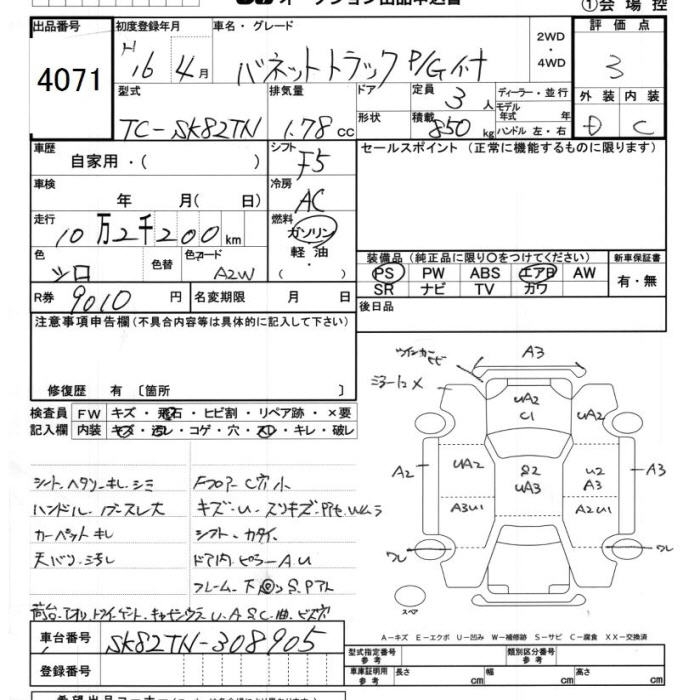 オークション出品申込書
①会場控
出品番号
4071
初度登録年月
H 16 4月
車名・グレード
バネットトラック P/G付
2WD
・
4WD
評価点
3
型式
TC-SK82TN
排気量
1.78 cc
ドア
形状
定員
3人
積載
850 kg
ディーラー・並行
モデル年式 年
ハンドル 左・右
外装
D
内装
C
車歴
自家用・( )
シフト
F5
セールスポイント (正常に機能するものに限ります)
車検
年 月(日)
冷房
AC
走行
10万2千200km
燃料
ガソリン
軽油
・( )
色
シロ
色替
色コード
A2W
装備品 (純正品に限り〇をつけてください)
PS PW ABS エアB AW
SR ナビ TV カワ
新車保証書
有・無
R券
9010円
名変期限 月 日
後日品
注意事項申告欄 (不具合内容等は具体的に記入して下さい)
修復歴 有 〔箇所 〕
検査員記入欄
FW キズ・飛石・ヒビ割・リペア跡・×要
内装 キズ・汚レ・コゲ・穴・スレ・キレ・破レ
シート、ヘタリ・キレ・シミ
ハンドル、スレ大
カーペット キレ
天バリ・ヨゴレ
Fフロアー C穴小
キズ・U・スリキズ
シフト・カタイ
ドア内・ピラーA.U
フレーム・下回
ウインカーヒビ
A3
ミラーエ×
UA2
C1
UA2
A2
UA2
S2
UA3
U2
A3
A3
A3U1
A2U1
ワレ
ワレ
スペア
A-キズ E-エクボ U-凹み W-補修跡 S-サビ C-腐食 XX-交換済
車台番号
SK82TN-308905
登録番号
型式指定番号
参考
類別区分番号
参考
車庫証明用
参考
長さ cm
幅 cm
高さ cm